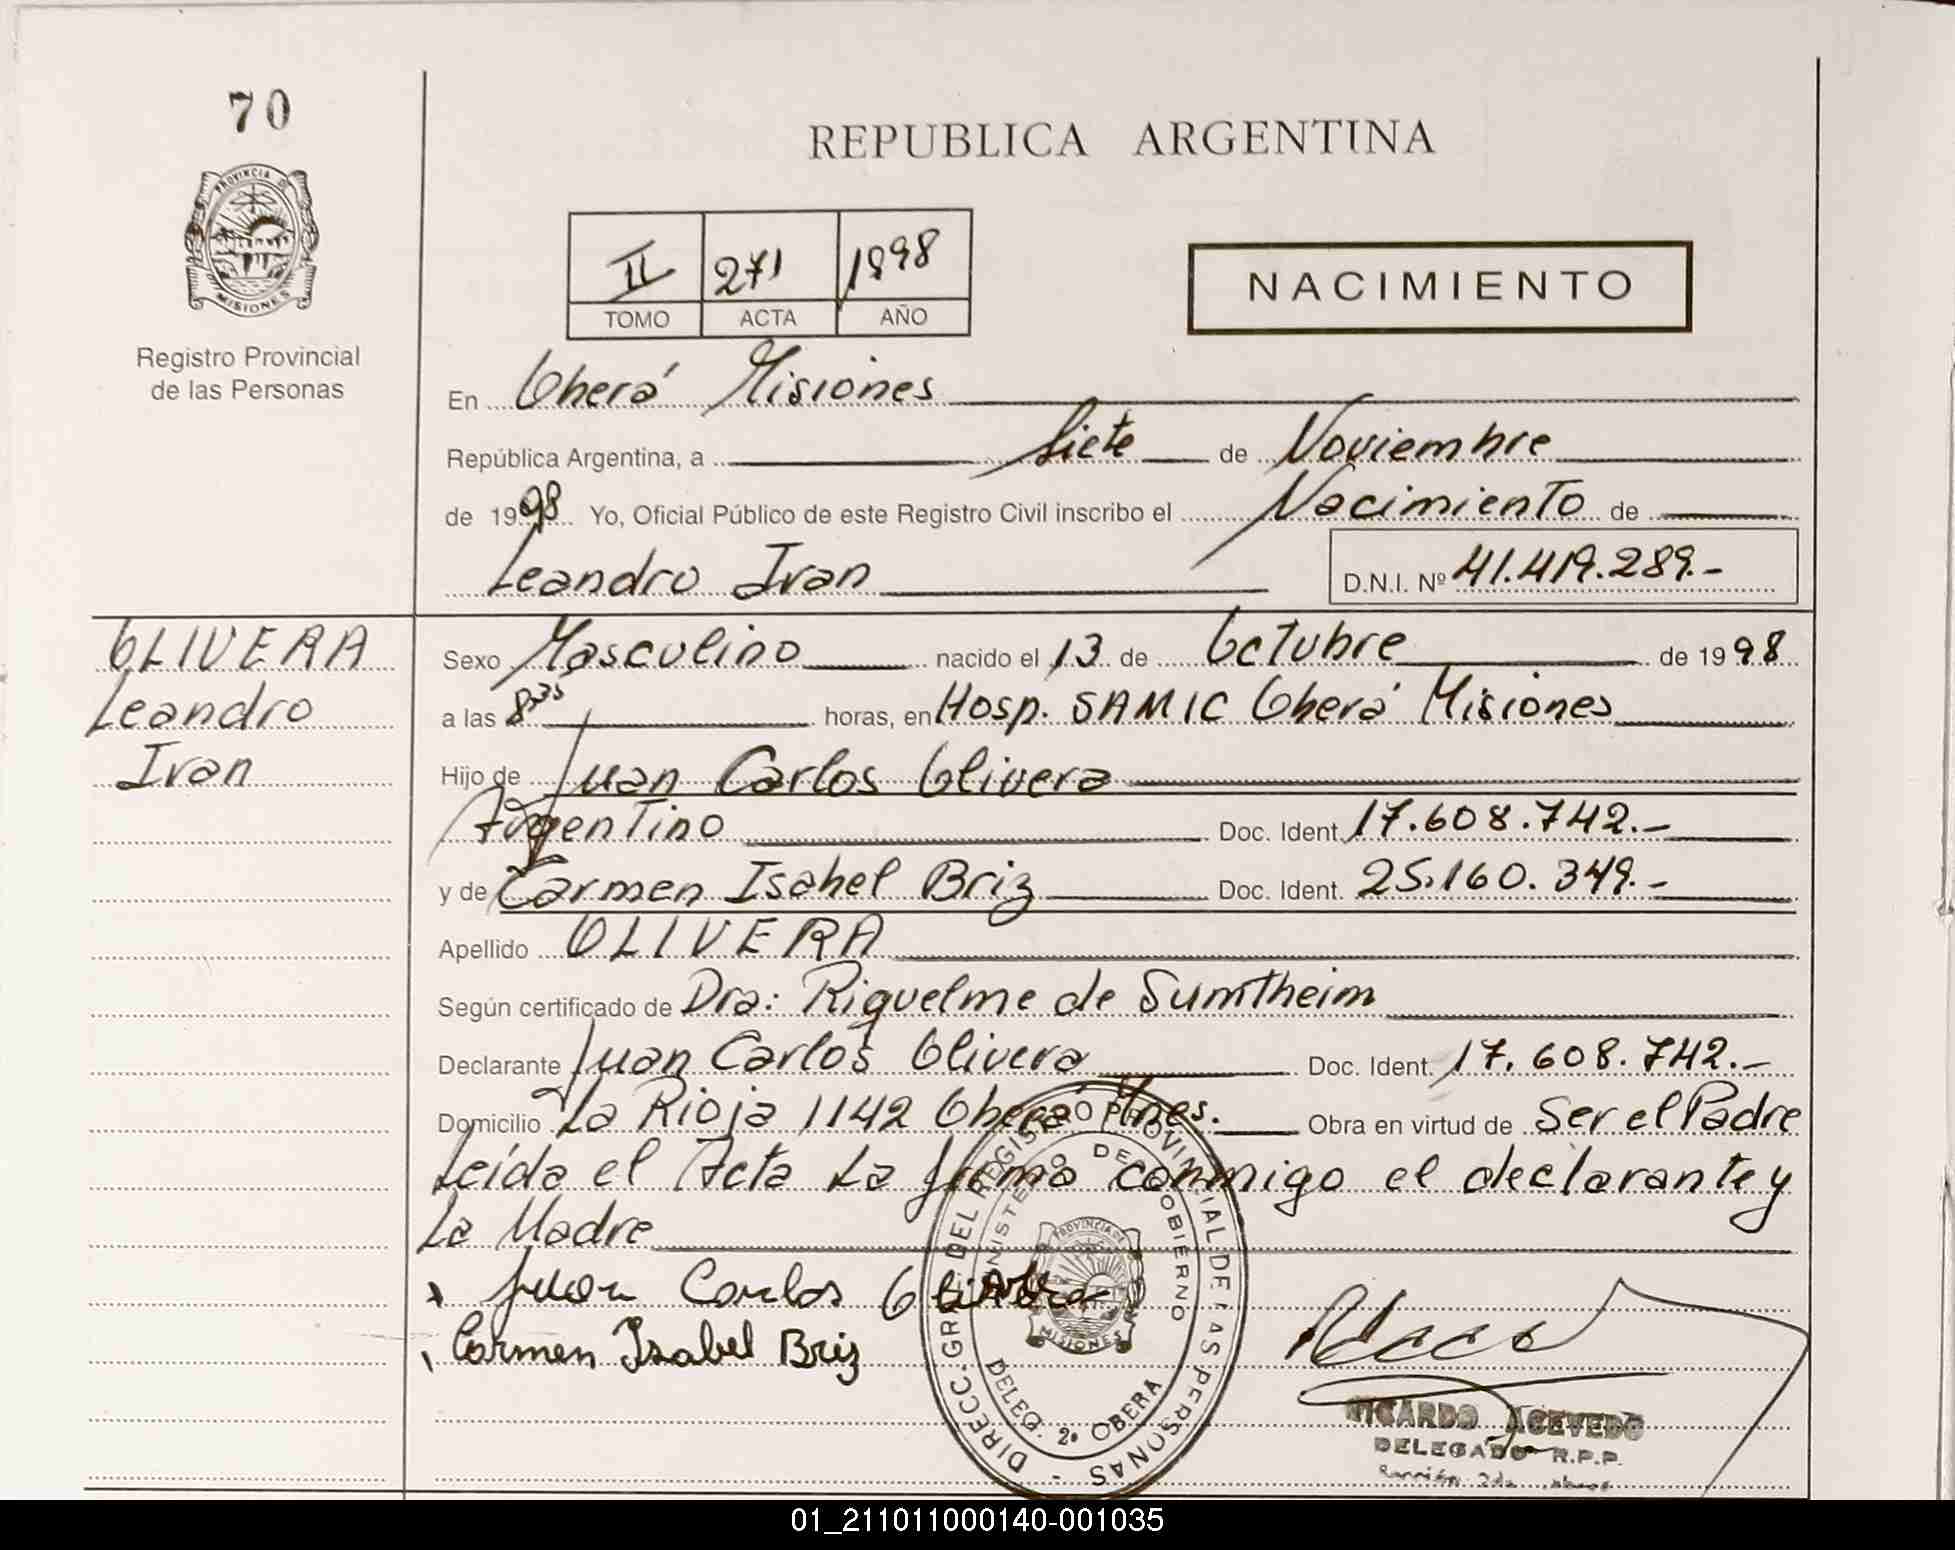 70
PROVINCIA DE
MISIONES
Registro Provincial
de las Personas
REPUBLICA ARGENTINA
II 271 1998
TOMO ACTA AÑO
NACIMIENTO
En Oberá Misiones
República Argentina, a Siete de Noviembre
de 1998 Yo, Oficial Público de este Registro Civil inscribo el Nacimiento de
Leandro Ivan D.N.I. Nº 41.419.289.-
OLIVERA
Leandro
Ivan
Sexo Masculino nacido el 13 de Octubre de 1998
a las 8:35 horas, en Hosp. SAMIC Oberá Misiones
Hijo de Juan Carlos Olivera
Argentino Doc. Ident. 17.608.742.-
y de Carmen Isabel Briz Doc. Ident. 25.160.349.-
Apellido OLIVERA
Según certificado de Dra: Riquelme de Sumtheim
Declarante Juan Carlos Olivera Doc. Ident. 17.608.742.-
Domicilio La Rioja 1142 Oberá Mnes. Obra en virtud de Ser el Padre
Leida el Acta La firma conmigo el declarante y
La Madre
Juan Carlos Olivera
Carmen Isabel Briz
DIRECC. GRAL. DEL REGISTRO PROVINCIAL DE LAS PERSONAS -
MINISTERIO DE GOBIERNO
PROVINCIA DE
MISIONES
DELEG. 2ª OBERA
RICARDO ACEVEDO
DELEGADO R.P.P.
01_211011000140-001035